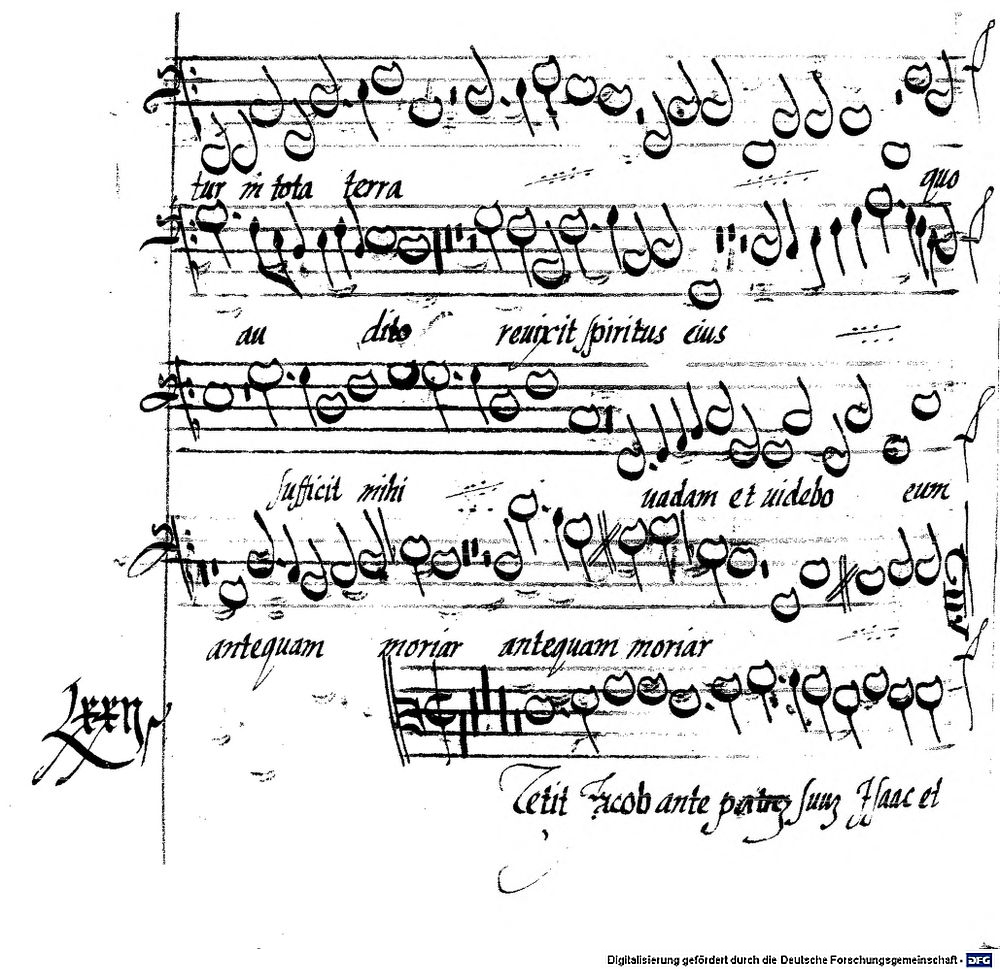 tur in tota terra quo
au dito reuixit spiritus eius
sufficit mihi uadam et uidebo eum
antequam moriar antequam moriar
Lxxij
Tetit Jacob ante suuz Isaac et
Digitalisierung gefördert durch die Deutsche Forschungsgemeinschaft - DFG